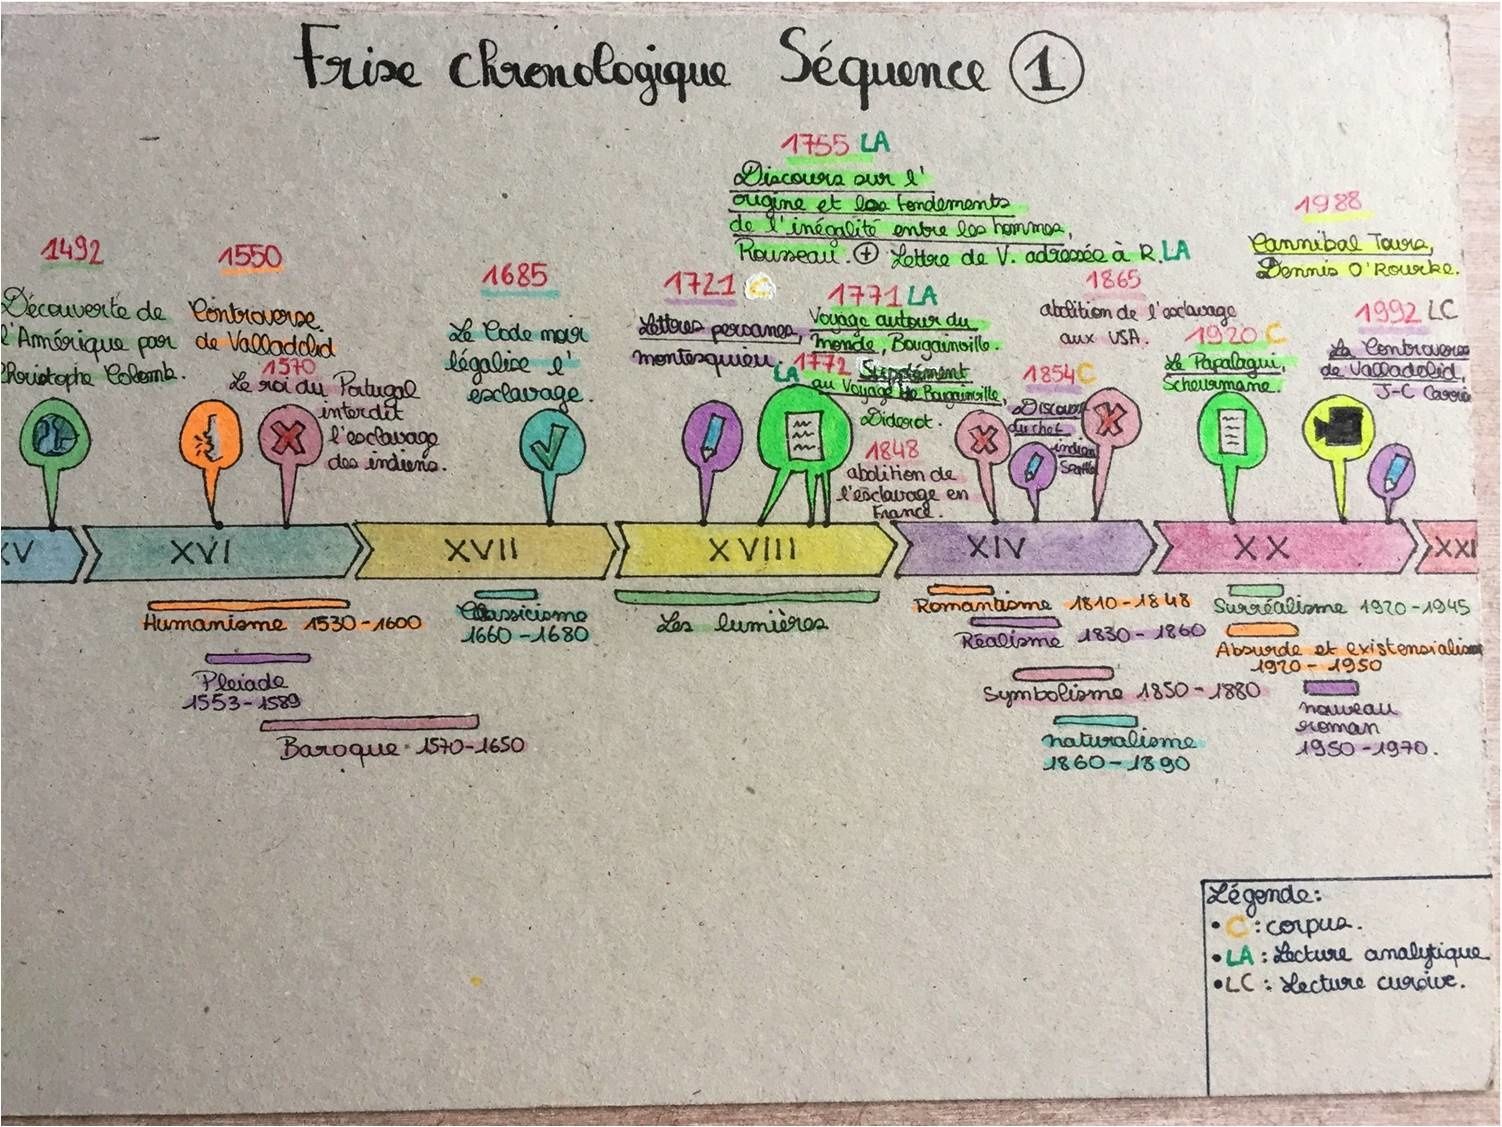 Frise chronologique Séquence 1
1492
Découverte de
l'Amérique par
Christophe Colomb.
1550
Controverse
de Valladolid
1570
Le roi du Portugal
interdit
l'esclavage
des indiens.
1685
Le Code noir
légalise l'
esclavage.
1721 C
Lettres persanes,
montesquieu.
1755 LA
Discours sur l'
origine et les fondements
de l'inégalité entre les hommes,
Rousseau. + Lettre de V. adressée à R. LA
1771 LA
Voyage autour du
monde, Bougainville.
LA 1772 Supplément
au Voyage de Bougainville,
Diderot.
1848
abolition de
l'esclavage en
France.
1854 C
Discours
du chef
indien
Seattle
1865
abolition de l'esclavage
aux USA.
1920 C
Le Papalagui,
Scheurmann.
1988
Cannibal Tours,
Dennis O'Rourke.
1992 LC
La Controverse
de Valladolid,
J-C Carrière
XV
XVI
XVII
XVIII
XIV
XX
XXI
Humanisme 1530-1600
Pleiade
1553-1589
Baroque 1570-1650
Classicisme
1660-1680
Les lumières
Romantisme 1810-1848
Réalisme 1830-1860
Symbolisme 1850-1880
naturalisme
1860-1890
Surréalisme 1920-1945
Absurde et existensialisme
1920-1950
nouveau
roman
1950-1970.
Légende:
• C : corpus.
• LA : Lecture analytique
• LC : Lecture cursive.